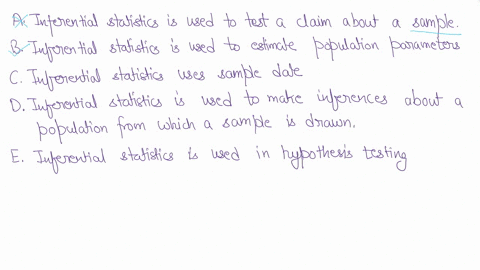 A. Inferential statistics is used to test a claim about a sample.
B. Inferential statistics is used to estimate population parameters
C. Inferential statistics uses sample date
D. Inferential statistics is used to make inferences about a
population from which a sample is drawn.
E. Inferential statistics is used in hypothesis testing